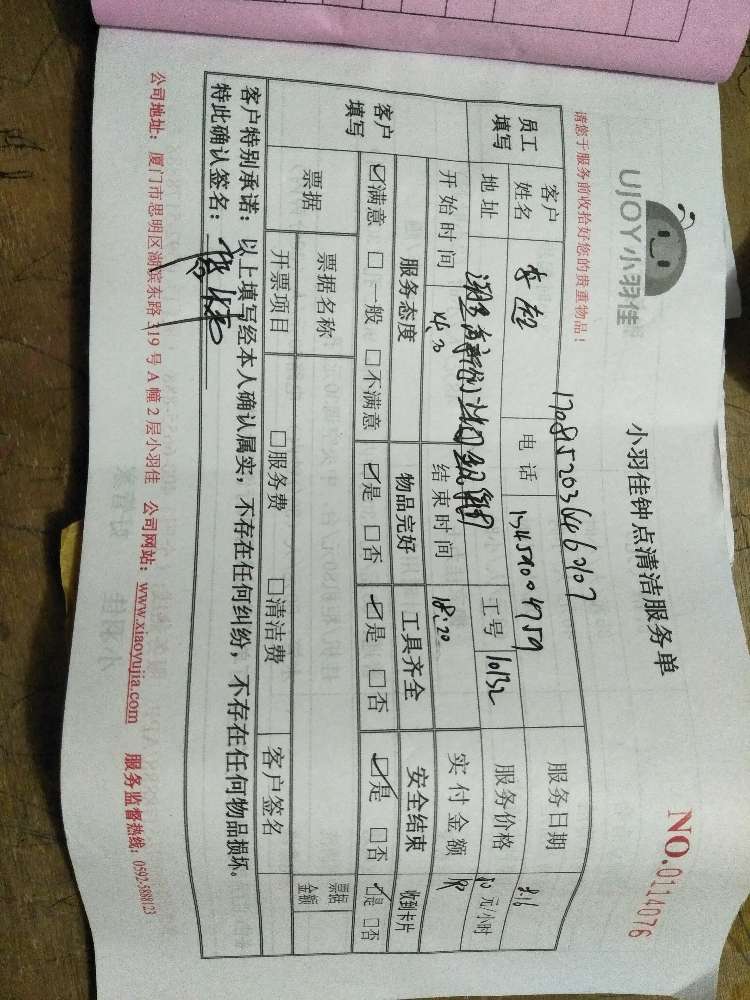 UJOY小羽佳
小羽佳钟点清洁服务单
NO.0114076
请您于服务前收拾好您的贵重物品！
员工填写
客户姓名
电话 13459004759
服务日期 8.16
地址
工号 10132
服务价格 元/小时
开始时间 14:20
结束时间 18:20
实付金额
客户填写
服务态度 物品完好 工具齐全 安全结束 收到卡片
☑满意 □一般 □不满意 ☑是 □否 ☑是 □否 ☑是 □否 ☑是 □否
票据
票据名称
票据金额
开票项目 □服务费 □清洁费 客户签名
客户特别承诺：以上填写经本人确认属实，不存在任何纠纷，不存在任何物品损坏。
特此确认签名：
公司地址：厦门市思明区湖滨东路319号A幢2层小羽佳 公司网站：www.xiaoyujia.com 服务监督热线：0592-5888123